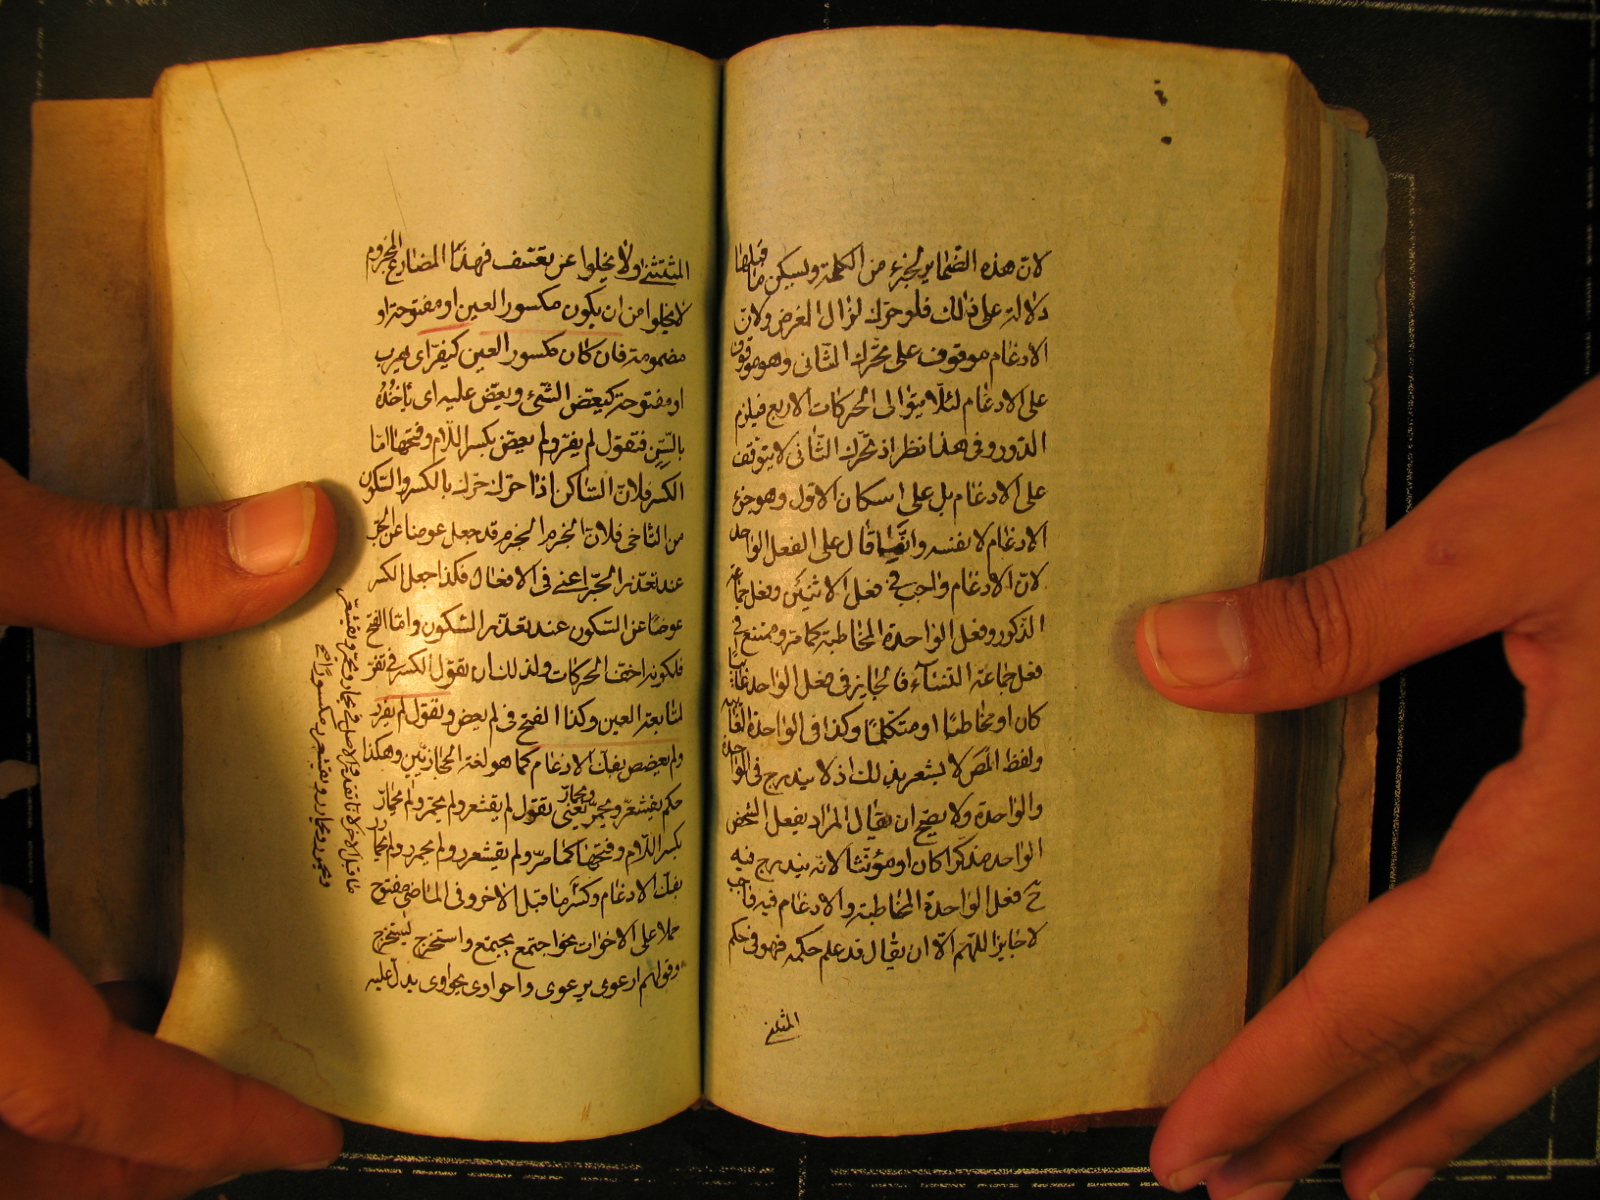 لان هذه الضماير لجزء من الكلمة وتسكين ما قبلها
دلالة على ذلك فلو حرك لزال الغرض ولان
الادغام موقوف على تحرك الثانى وهو موقوف
على الادغام لئلا يتوالى الحركات الاربع فيلزم
الدور وفى هذا نظر اذ تحرك الثانى لا يتوقف
على الادغام بل على اسكان الاول وهو جزء
الادغام لا نفسه وانما قال على الفعل الواحد
لان الادغام واجب فى فعل الاثنين وفعل جماعة
الذكور وفعل الواحدة المخاطبة كما مر وممتنع فى
فعل جماعة النساء فالجايز فى فعل الواحد غايبا
كان او مخاطبا او متكلما وكذا فى الواحدة الغايبة
ولفظ المص لا يشعر بذلك اذ لا يندرج فى الواحد
والواحدة ولا يصح ان يقال المراد بفعل الشخص
الواحد مذكرا كان او مؤنثا لانه يندرج فيه
ح فعل الواحدة المخاطبة والادغام فيه واجب
لا جايز اللهم الا ان يقال قد علم حكمه فهو فى حكم
المثتثنى
المثتثنى ولا يخلوا عن تعسف فهذا المضارع المجزوم
لا يخلوا من ان يكون مكسور العين او مفتوحة او
مضمومة فان كان مكسور العين كيفر اى يهرب
او مفتوحة كيعض الشىء ويعض عليه اى ياخذه
بالسن فتقول لم يفر ولم يعض بكسر اللام وفتحها اما
الكسر فلان الساكن اذا حرك حرك بالكسر والسكون
من التاخى فلان الجزم قد جعل عوضا عن الجر
عند تعذر الجر اعنى فى الافعال فكذا جعل الكسر
عوضا عن السكون عند تعذر السكون واما الفتح
فلكونه اخف الحركات ولذلك ان يقول الكسر فى تفر
لمتابعة العين وكذا الفتح فى لم يعض وتقول لم يفرر
ولم يعضض بفك الادغام كما هو لغة الحجازيين وهكذا
حكم يقشعر ويحمر ويحمار يعنى تقول لم يقشعر ولم يحمر ولم يحمار
بكسر اللام وفتحها كما مر ولم يقشعرر ولم يحمرر ولم يحمارر
بفك الادغام وكسر ما قبل الاخر وفى الماضى مفتوح
حملا على الاخوات نحو اجتمع يجتمع واستخرج يستخرج
وقولهم ارعوى يرعوى واحواوى يحواوى يدل عليه